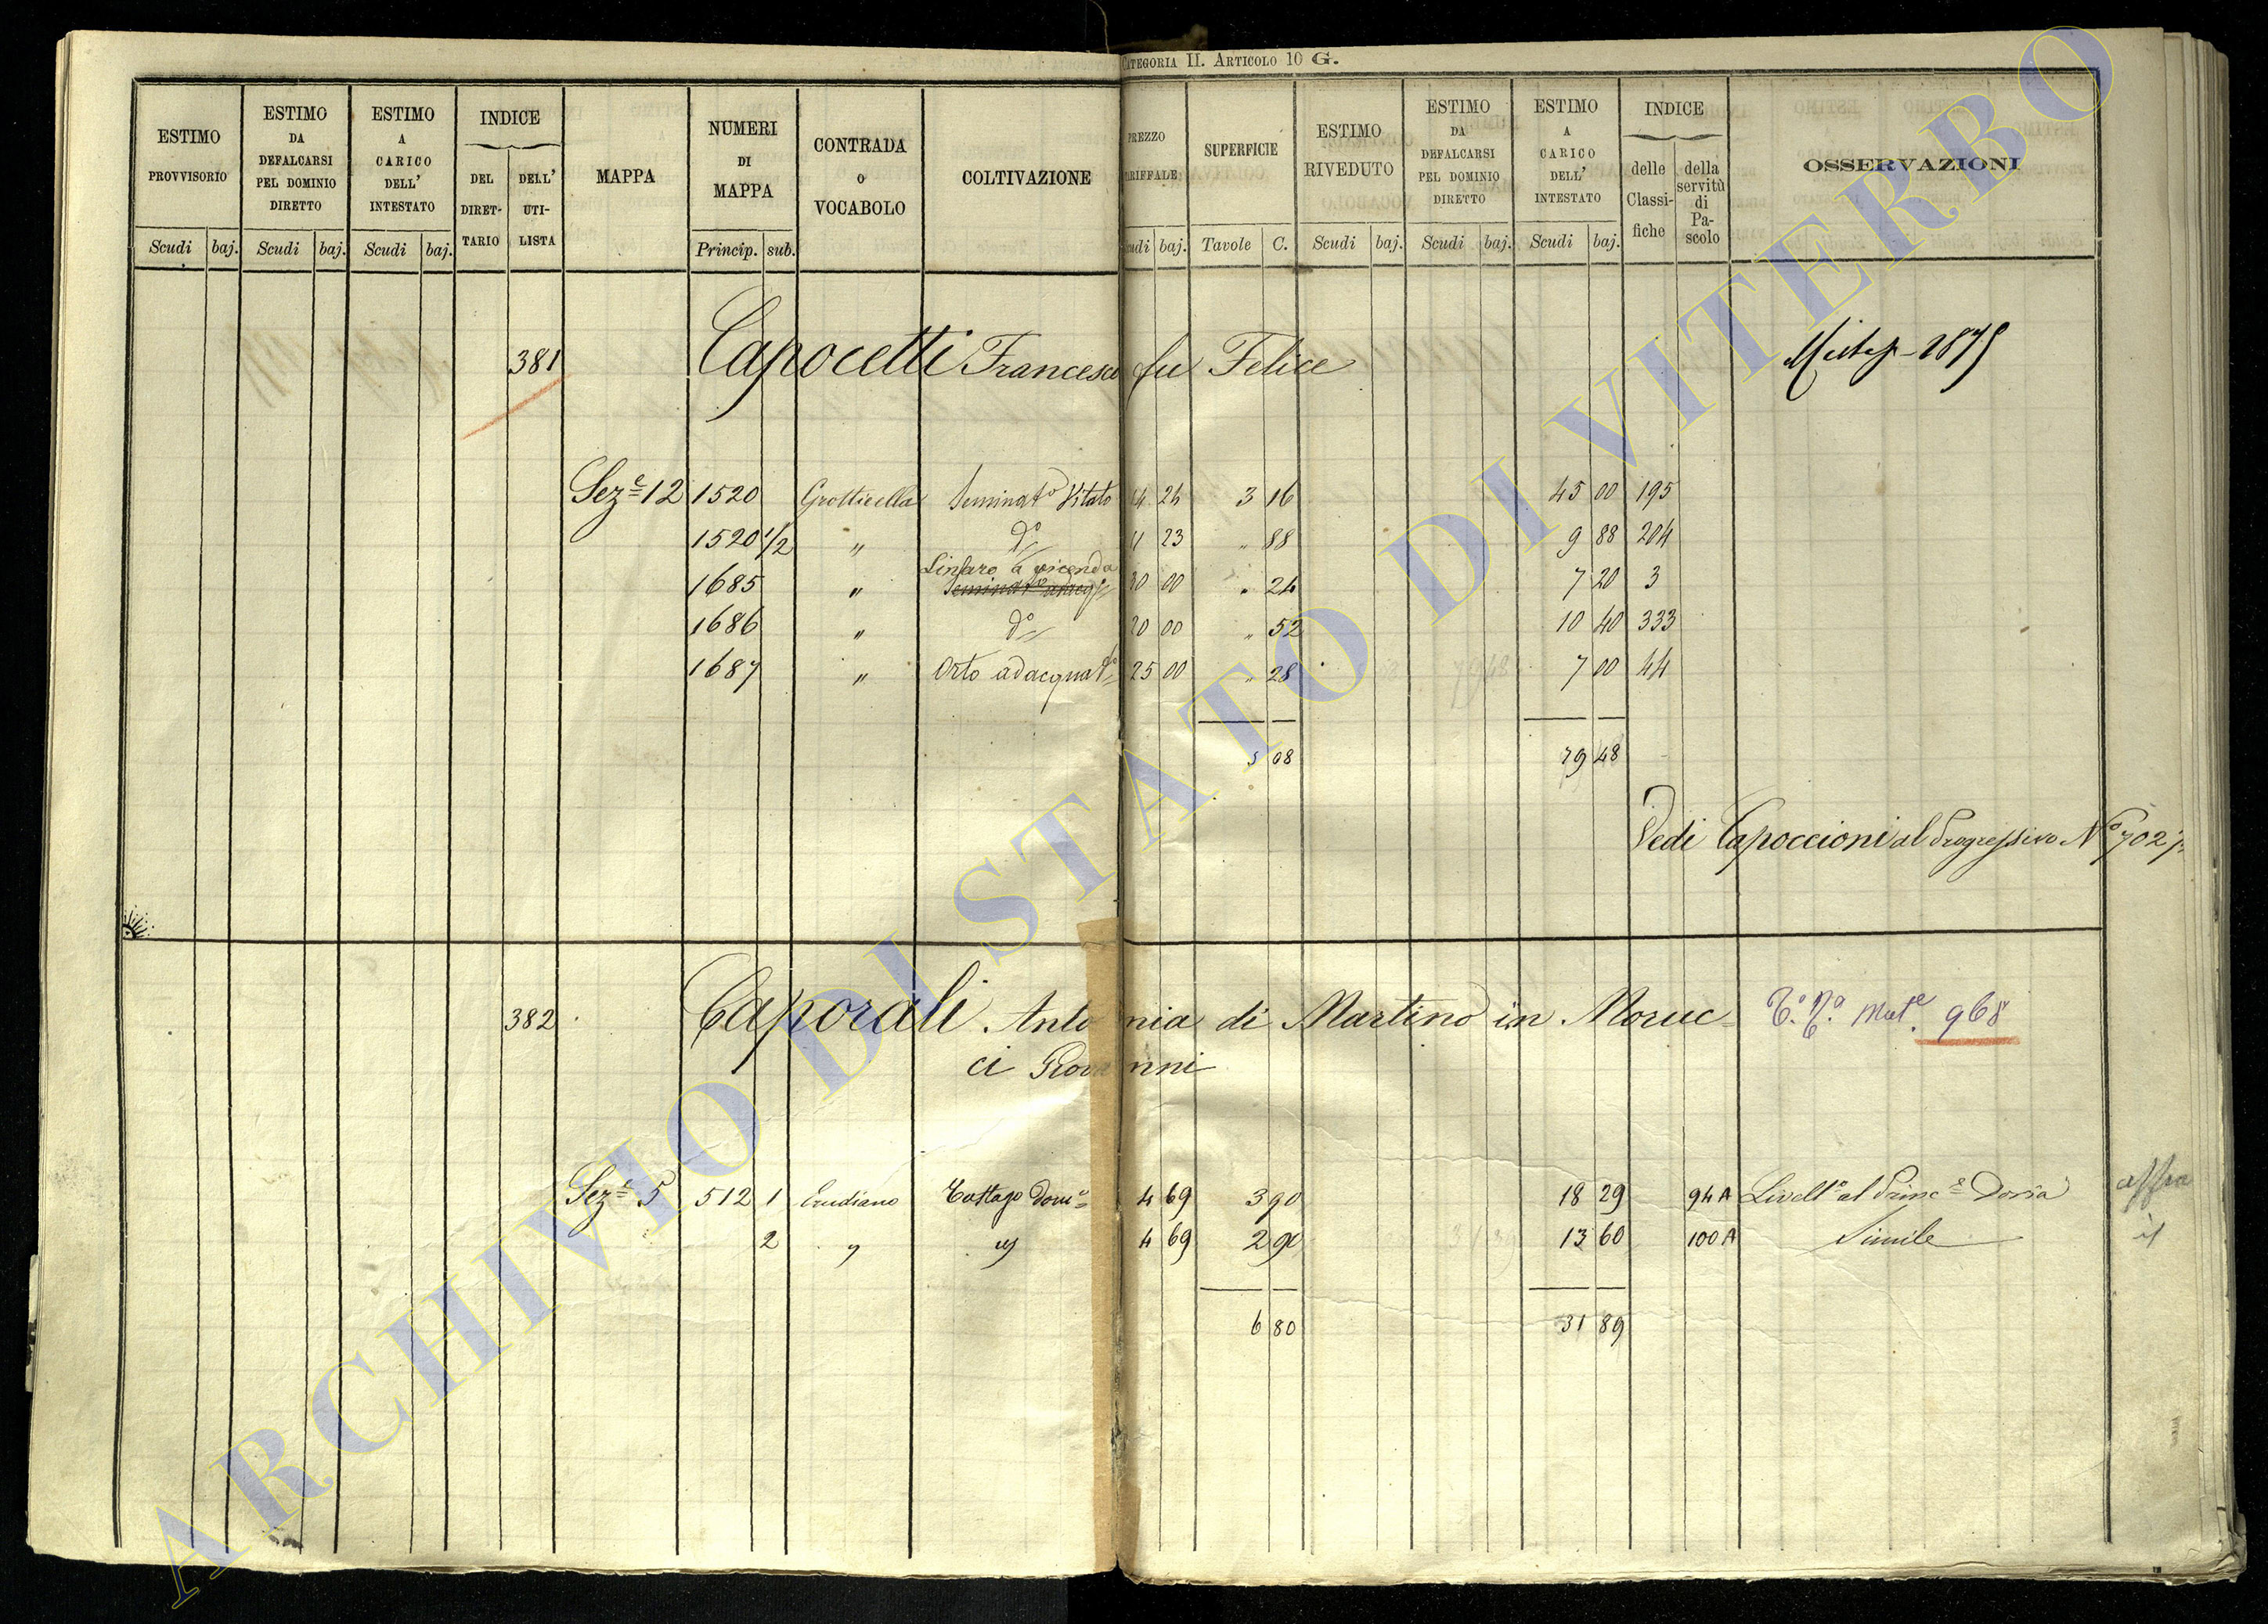 CATEGORIA II. ARTICOLO 10 G.
ESTIMO PROVVISORIO | ESTIMO DA DEFALCARSI PEL DOMINIO DIRETTO | ESTIMO A CARICO DELL' INTESTATO | INDICE DEL DIRETTARIO | DELL' UTILISTA | MAPPA | NUMERI DI MAPPA | CONTRADA O VOCABOLO | COLTIVAZIONE | PREZZO TARIFFALE | SUPERFICIE | ESTIMO RIVEDUTO | ESTIMO DA DEFALCARSI PEL DOMINIO DIRETTO | ESTIMO A CARICO DELL' INTESTATO | INDICE delle Classifiche | della servitù di Pascolo | OSSERVAZIONI
Scudi baj. Scudi baj. Scudi baj. Princip. sub. Scudi baj. Tavole C. Scudi baj. Scudi baj. Scudi baj.
381 Capocetti Francesco fu Felice
Seze 12 1520 Grotticella Seminato Vitato 14 24 3 16 45 00 195
1520 1/2 " do 11 23 " 88 9 88 204
Linaro a vicenda
1685 " 30 00 " 24 7 20 3
1686 " do 20 00 " 52 10 40 333
1687 " Orto adacquato 25 00 " 28 7 00 44
5 08 79 48
Vedi Capoccioni al Progressivo No 702
382 Caporali Antonia di Martino in Moruc= Mate 968
ci Giovanni
Seze 5 512 1 Castago Dome 4 69 3 90 18 29 94A Livello al Prince Doria
2 " 4 69 2 90 13 60 100A Simile
6 80 31 89
ARCHIVIO DI STATO DI VITERBO